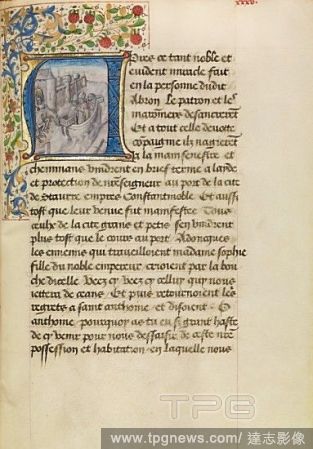 xxxv.
Pres ce tant noble et
euident miracle fait
en la personne dudit
Abron Le patron et les
maronniers desancrerent
Et a tout celle deuote
compaignie ilz nagerent
a la main senestre et
cheminans vindrent en brief terme a lande
et protection de nostre seigneur au port de la cite
de empres Constantinoble Et aussi
tost que leur venue fut manifestee Tous
ceulx de la cite grans et petis sen vindrent
plus tost que le cours au port Adoncques
les ennemis qui traueilloient madame sophie
fille du noble empereur crioient par la bou
che dicelle Veez cy veez cy celluy qui nous
iettera de ceans Et puis retournoient les
regrets a saint anthoine et disoient O
anthoine pourquoy as tu eu si grant haste
de cy venir pour nous dessaisir de ceste nostre
possession et habitation en laquelle nous
TPG
www.tpgnews.com/ 達志影像